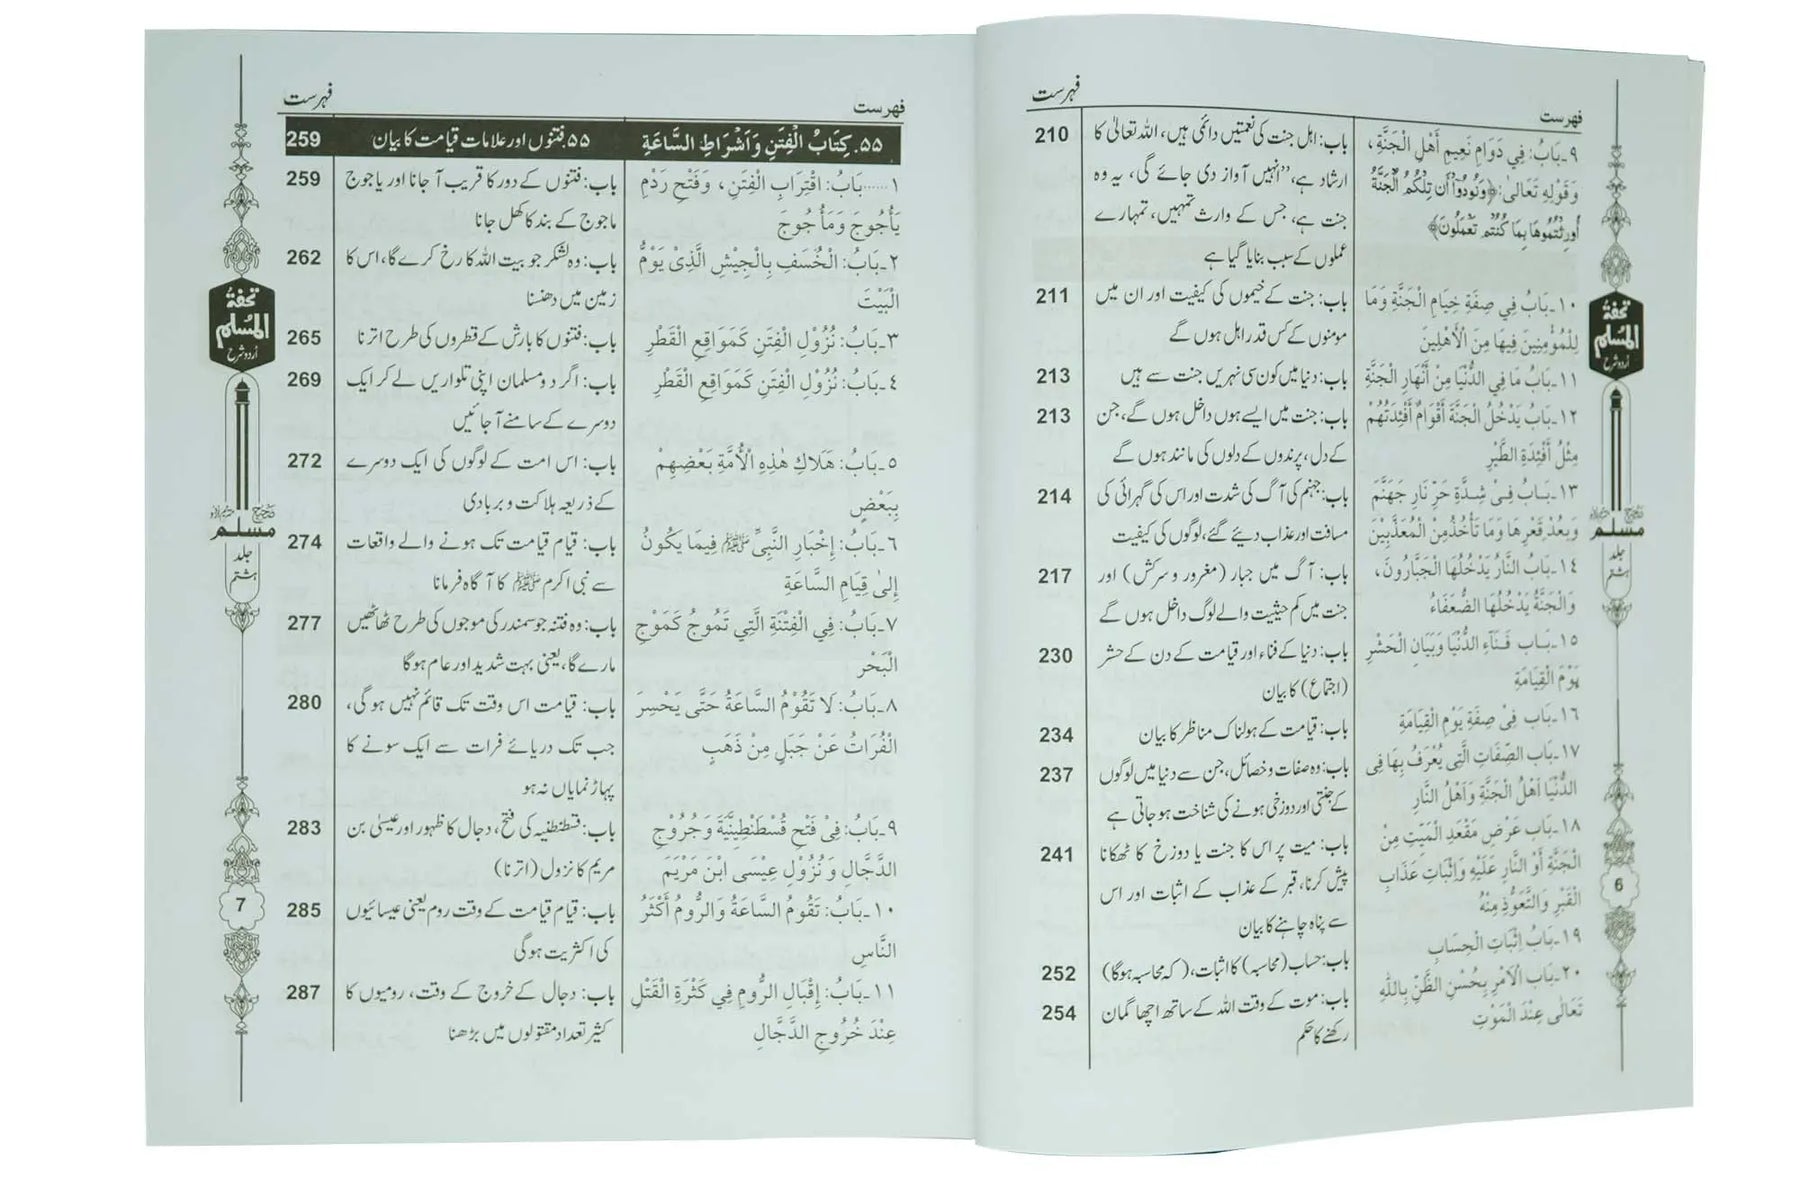 فہرست
فهرست
٩ـ بَابُ: فِي دَوَامِ نَعِيمِ أَهْلِ الْجَنَّةِ،
وَقَوْلِهِ تَعَالىٰ: ﴿وَنُودُوٓاْ أَن تِلْكُمُ الْجَنَّةُ
أُورِثْتُمُوهَا بِمَا كُنتُمْ تَعْمَلُونَ﴾
باب: اہل جنت کی نعمتیں دائمی ہیں، اللہ تعالیٰ کا
ارشاد ہے، ’’انہیں آواز دی جائے گی، یہ وہ
جنت ہے، جس کے وارث تمہیں، تمہارے
عملوں کے سبب بنایا گیا ہے
210
١٠ـ بَابُ فِي صِفَةِ خِيَامِ الْجَنَّةِ وَمَا
لِلْمُؤْمِنِينَ فِيهَا مِنَ الْأَهْلِينَ
باب: جنت کے خیموں کی کیفیت اور ان میں
مومنوں کے کس قدر اہل ہوں گے
211
١١ـ بَابُ مَا فِي الدُّنْيَا مِنْ أَنْهَارِ الْجَنَّةِ
باب: دنیا میں کون سی نہریں جنت سے ہیں
213
١٢ـ بَابُ يَدْخُلُ الْجَنَّةَ أَقْوَامٌ أَفْئِدَتُهُمْ
مِثْلُ أَفْئِدَةِ الطَّيْرِ
باب: جنت میں ایسے ہوں داخل ہوں گے، جن
کے دل، پرندوں کے دلوں کی مانند ہوں گے
213
١٣ـ بَابُ فِيْ شِدَّةِ حَرِّ نَارِ جَهَنَّمَ
وَبَعْدَ قَعْرِهَا وَمَا تَأْخُذُ مِنَ الْمُعَذَّبِيْنَ
باب: جہنم کی آگ کی شدت اور اس کی گہرائی کی
مسافت اور عذاب دیئے گئے، لوگوں کی کیفیت
214
١٤ـ بَابُ النَّارُ يَدْخُلُهَا الْجَبَّارُونَ،
وَالْجَنَّةُ يَدْخُلُهَا الضُّعَفَاءُ
باب: آگ میں جبار (مغرور و سرکش) اور
جنت میں کم حیثیت والے لوگ داخل ہوں گے
217
١٥ـ بَاب فَنَاءِ الدُّنْيَا وَبَيَانِ الْحَشْرِ
يَوْمَ الْقِيَامَةِ
باب: دنیا کے فناء اور قیامت کے دن کے حشر
(اجتماع) کا بیان
230
١٦ـ بَاب فِيْ صِفَةِ يَوْمِ الْقِيَامَةِ
باب: قیامت کے ہولناک مناظر کا بیان
234
١٧ـ بَاب الصِّفَاتِ الَّتِي يُعْرَفُ بِهَا فِى
الدُّنْيَا أَهْلُ الْجَنَّةِ وَأَهْلُ النَّارِ
باب: وہ صفات و خصائل، جن سے دنیا میں لوگوں
کے جنتی اور دوزخی ہونے کی شناخت ہو جاتی ہے
237
١٨ـ بَاب عَرْضِ مَقْعَدِ الْمَيِّتِ مِنَ
الْجَنَّةِ أَوِ النَّارِ عَلَيْهِ وَإِثْبَاتِ عَذَابِ
الْقَبْرِ وَالتَّعَوُّذِ مِنْهُ
باب: میت پر اس کا جنت یا دوزخ کا ٹھکانا
پیش کرنا، قبر کے عذاب کے اثبات اور اس
سے پناہ چاہنے کا بیان
241
١٩ـ بَابُ إِثْبَاتِ الْحِسَابِ
باب: حساب (محاسبہ) کا اثبات، (کہ محاسبہ ہوگا)
252
٢٠ـ بَاب الْأَمْرِ بِحُسْنِ الظَّنِّ بِاللّٰهِ
تَعَالٰى عِنْدَ الْمَوْتِ
باب: موت کے وقت اللہ کے ساتھ اچھا گمان
رکھنے کا حکم
254
تحفۃُ
المُسلم
اُردو شرح
صحیح
مسلم
جلد
ہشتم
6
فہرست
فهرست
٥٥. كِتَابُ الْفِتَنِ وَأَشْرَاطِ السَّاعَةِ
۵۵. فتنوں اور علامات قیامت کا بیان
259
١......بَابُ: اقْتِرَابِ الْفِتَنِ، وَفَتْحِ رَدْمِ
يَأْجُوجَ وَمَأْجُوجَ
باب: فتنوں کے دور کا قریب آ جانا اور یاجوج
ماجوج کے بند کا کھل جانا
259
٢ـ بَابُ: الْخَسْفِ بِالْجِيْشِ الَّذِىْ يَوْمُّ
الْبَيْتَ
باب: وہ لشکر جو بیت اللہ کا رخ کرے گا، اس کا
زمین میں دھنسنا
262
٣ـ بَابُ: نُزُوْلِ الْفِتَنِ كَمَوَاقِعِ الْقَطْرِ
باب: فتنوں کا بارش کے قطروں کی طرح اترنا
265
٤ـ بَابُ: نُزُوْلِ الْفِتَنِ كَمَوَاقِعِ الْقَطْرِ
باب: اگر دو مسلمان اپنی تلواریں لے کر ایک
دوسرے کے سامنے آ جائیں
269
٥ـ بَابُ: هَلَاكِ هٰذِهِ الْأُمَّةِ بَعْضِهِمْ
بِبَعْضٍ
باب: اس امت کے لوگوں کی ایک دوسرے
کے ذریعہ ہلاکت و بربادی
272
٦ـ بَابُ: إِخْبَارِ النَّبِيِّ ﷺ فِيمَا يَكُونُ
إِلىٰ قِيَامِ السَّاعَةِ
باب: قیام قیامت تک ہونے والے واقعات
سے نبی اکرم ﷺ کا آگاہ فرمانا
274
٧ـ بَابُ: فِي الْفِتْنَةِ الَّتِي تَمُوجُ كَمَوْجِ
الْبَحْرِ
باب: وہ فتنہ جو سمندر کی موجوں کی طرح ٹھاٹھیں
مارے گا، یعنی بہت شدید اور عام ہوگا
277
٨ـ بَابُ: لَا تَقُوْمُ السَّاعَةُ حَتّٰى يَحْسِرَ
الْفُرَاتُ عَنْ جَبَلٍ مِنْ ذَهَبٍ
باب: قیامت اس وقت تک قائم نہیں ہو گی،
جب تک دریائے فرات سے ایک سونے کا
پہاڑ نمایاں نہ ہو
280
٩ـ بَابُ: فِىْ فَتْحِ قُسْطَنْطِيْنِيَّةَ وَخُرُوْجِ
الدَّجَّالِ وَنُزُوْلِ عِيْسَى ابْنِ مَرْيَمَ
باب: قسطنطنیہ کی فتح، دجال کا ظہور اور عیسیٰ بن
مریم کا نزول (اترنا)
283
١٠ـ بَابُ: تَقُوْمُ السَّاعَةُ وَالرُّومُ أَكْثَرُ
النَّاسِ
باب: قیام قیامت کے وقت روم یعنی عیسائیوں
کی اکثریت ہوگی
285
١١ـ بَابُ: إِقْبَالِ الرُّومِ فِي كَثْرَةِ الْقَتْلِ
عِنْدَ خُرُوجِ الدَّجَّالِ
باب: دجال کے خروج کے وقت، رومیوں کا
کثیر تعداد مقتولوں میں بڑھنا
287
تحفۃُ
المُسلم
اُردو شرح
صحیح
مسلم
جلد
ہشتم
7